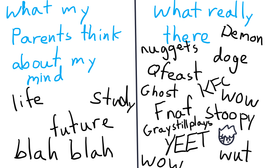 what my
Parents think
about my
mind
life study
future
blah blah
what really
there Demon
nuggets doge
Qfeast
Ghost KFC
wow
Fnaf stoopy
Graystillplays
YEET
wow wut